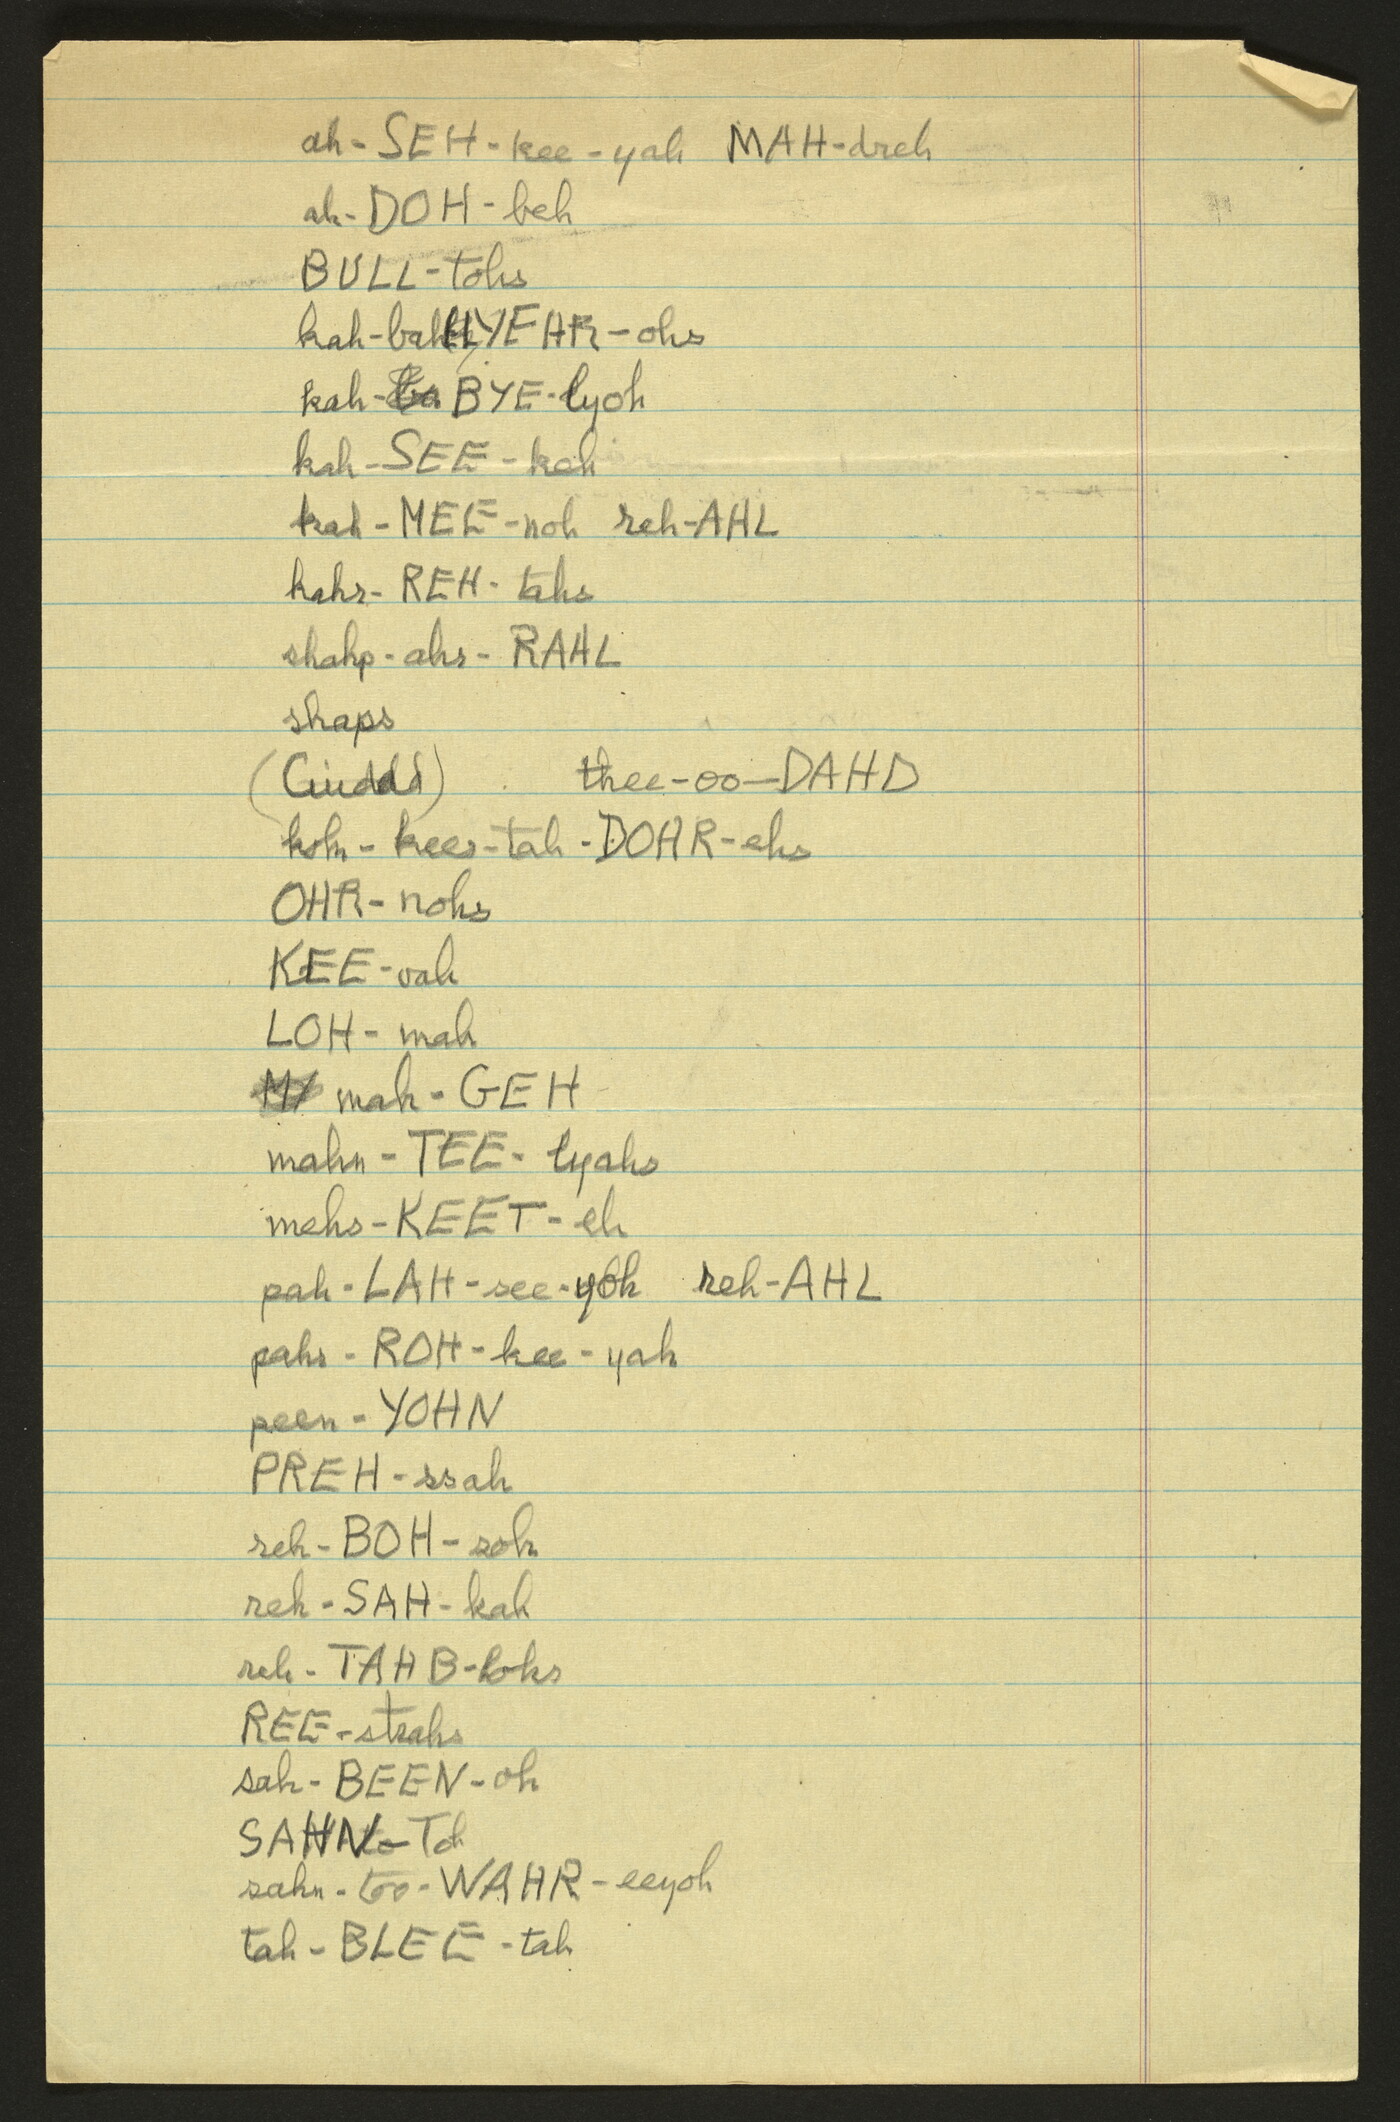 ah-SEH-kee-yah MAH-dreh
ah-DOH-beh
BULL-tohs
kah-bahLLYEHR-ohs
kah-BYE-lyoh
kah-SEE-keh
kah-MEE-noh reh-AHL
kahr-REH-tahs
shahp-ahr-RAHL
shaps
(Ciudad) thee-oo-DAHD
kohn-kees-tah-DOHR-ehs
OHR-nohs
KEE-vah
LOH-mah
mah-GEH
mahn-TEE-lyahs
mehs-KEET-eh
pah-LAH-see-yoh reh-AHL
pahr-ROH-kee-yah
peen-YOHN
PREH-ssah
reh-BOH-soh
reh-SAH-kah
reh-TAHB-lohs
REE-strahs
sah-BEEN-oh
SAHN-Toh
sahn-too-WAHR-eeyoh
tah-BLEE-tah